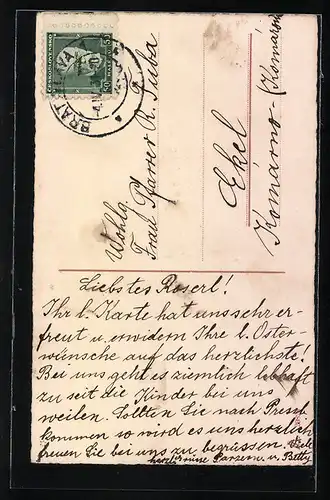 ČESKOSLOVENSKO
50 50
BRATISLAVA
Wohlg.
Frau Pfarrer R. Puba
Ekel
Komárno - (Komárom
Liebstes Roserl!
Ihr l. Karte hat uns sehr er-
freut u. erwidern Ihre l. Oster-
wünsche auf das herzlichste!
Bei uns geht es ziemlich lebhaft
zu seit die Kinder bei uns
weilen. Sollten Sie nach Pressb.
kommen so wird es uns herzlich
freuen Sie bei uns zu begrüssen. Viele
herzl. u. Betty